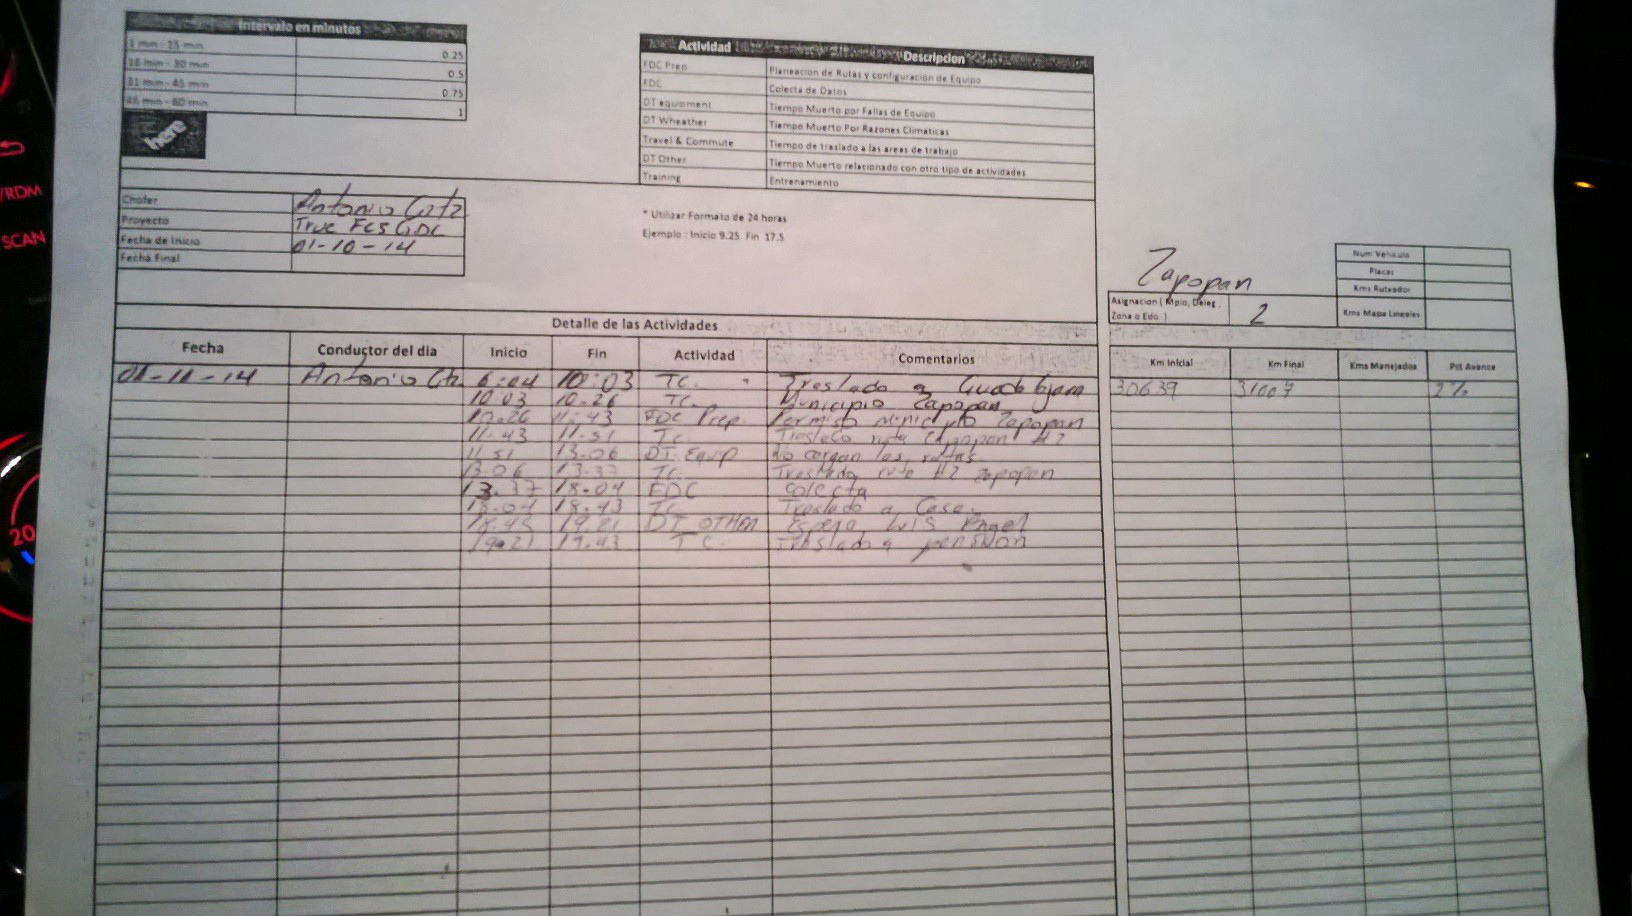 Intervalo en minutos
1 min - 15 min 0.25
16 min - 30 min 0.5
31 min - 45 min 0.75
46 min - 60 min 1
here
Actividad Descripcion
FDC Prep Planeacion de Rutas y configuración de Equipo
FDC Colecta de Datos
DT equipment Tiempo Muerto por Fallas de Equipo
DT Wheather Tiempo Muerto Por Razones Climaticas
Travel & Commute Tiempo de traslado a las areas de trabajo
DT Other Tiempo Muerto relacionado con otro tipo de actividades
Training Entrenamiento
Chofer Antonio Gtz
Proyecto True FCS GDL
Fecha de Inicio 01-10-14
Fecha Final
* Utilizar Formato de 24 horas
Ejemplo : Inicio 9.25 Fin 17.5
Zapopan
Asignacion ( Mpio, Deleg, Zona o Edo ) 2
Num Vehiculo
Placas
Kms Ruteador
Kms Mapa Lineales
Detalle de las Actividades
Fecha Conductor del dia Inicio Fin Actividad Comentarios Km Inicial Km Final Kms Manejados Pct Avance
01-10-14 Antonio Gtz 6:04 10:03 TC. Traslado a Guadalajara 30639 31007 2%
10:03 10.26 TC. Municipio Zapopan
10.26 11:43 FDC Prep. Permiso Municipio Zapopan
11.43 11.51 TC. Traslado ruta Zapopan #2
11.51 13.06 DT Equip No cargan las rutas.
13.06 13.37 TC. Traslado ruta #2 Zapopan
13.37 18.04 FDC Colecta
18.04 18.43 TC Traslado a Casa.
18.43 19.21 DT OTHER Espera Luis Angel
19.21 19.43 TC. Traslado a pension
/RDM
SCAN
20